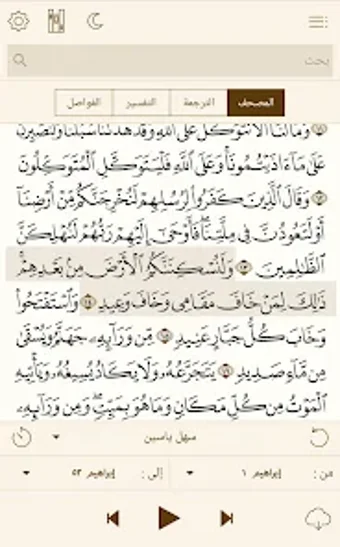 بحث
المصحف الترجمة التفسير الفواصل
وَمَا لَنَا أَلَّا نَتَوَكَّلَ عَلَى اللَّهِ وَقَدْ هَدَىٰنَا سُبُلَنَا وَلَنَصْبِرَنَّ
عَلَىٰ مَا ءَاذَيْتُمُونَا وَعَلَى اللَّهِ فَلْيَتَوَكَّلِ الْمُتَوَكِّلُونَ
١٢ وَقَالَ الَّذِينَ كَفَرُوا لِرُسُلِهِمْ لَنُخْرِجَنَّكُم مِّنْ أَرْضِنَا
أَوْ لَتَعُودُنَّ فِي مِلَّتِنَا فَأَوْحَىٰ إِلَيْهِمْ رَبُّهُمْ لَنُهْلِكَنَّ
الظَّالِمِينَ ١٣ وَلَنُسْكِنَنَّكُمُ الْأَرْضَ مِن بَعْدِهِمْ
ذَٰلِكَ لِمَنْ خَافَ مَقَامِي وَخَافَ وَعِيدِ ١٤ وَاسْتَفْتَحُوا
وَخَابَ كُلُّ جَبَّارٍ عَنِيدٍ ١٥ مِّن وَرَائِهِ جَهَنَّمُ وَيُسْقَىٰ
مِن مَّاءٍ صَدِيدٍ ١٦ يَتَجَرَّعُهُ وَلَا يَكَادُ يُسِيغُهُ وَيَأْتِيهِ
الْمَوْتُ مِن كُلِّ مَكَانٍ وَمَا هُوَ بِمَيِّتٍ وَمِن وَرَائِهِ
سهل ياسين
من : إبراهيم ١ إلى : إبراهيم ٥٢